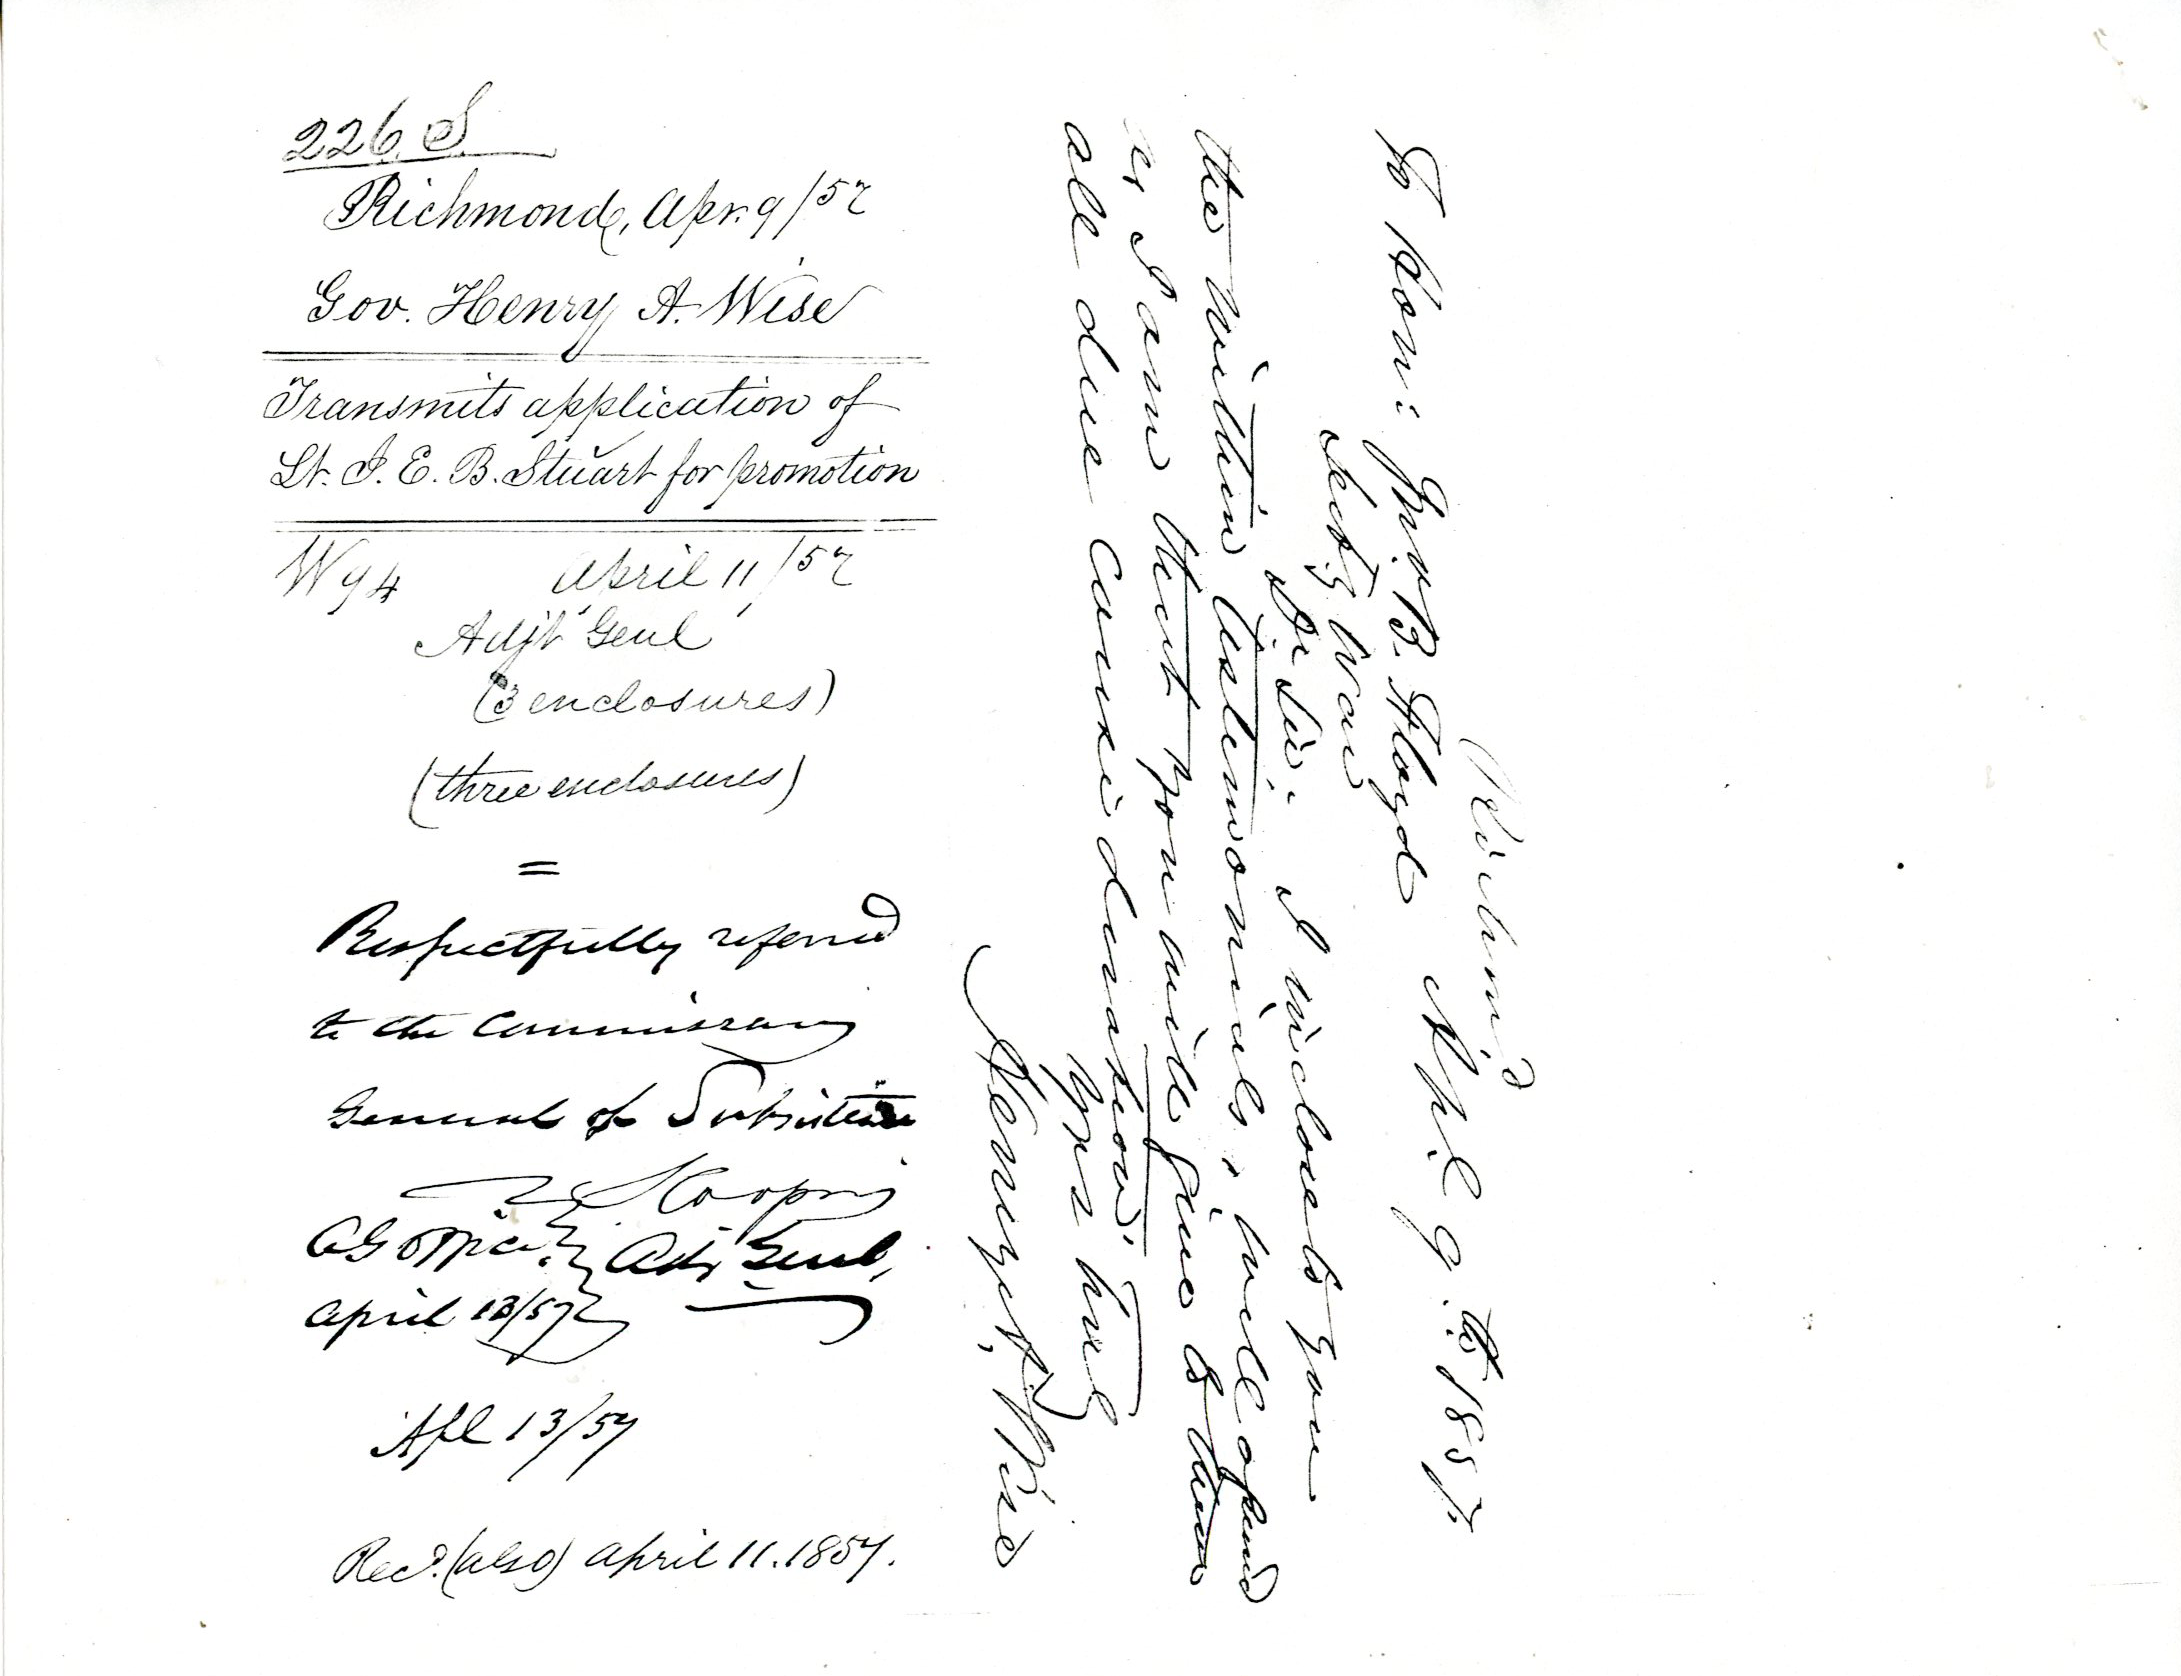 226. S.
Richmond, Apr. 9/57
Gov. Henry A. Wise
Transmits application of
Lt. J. E. B. Stuart for promotion
W 94 April 11/57
Adjt Genl
(3 enclosures)
(three enclosures)
=
Respectfully referred
to the Commissary
General of Subsistence
S Cooper
AG Office. Adj. Genl.
April 13/57
Apl 13/57
Recd. (also) April 11. 1857.
Richmd
April 9th 1857.
To Hon: Jno. B. Floyd
Secty War
Dr Sir: I inclose to you
the within testimonials, unopened
as I am that you will give to them
all due consideration.
Yrs truly
Henry A. Wise